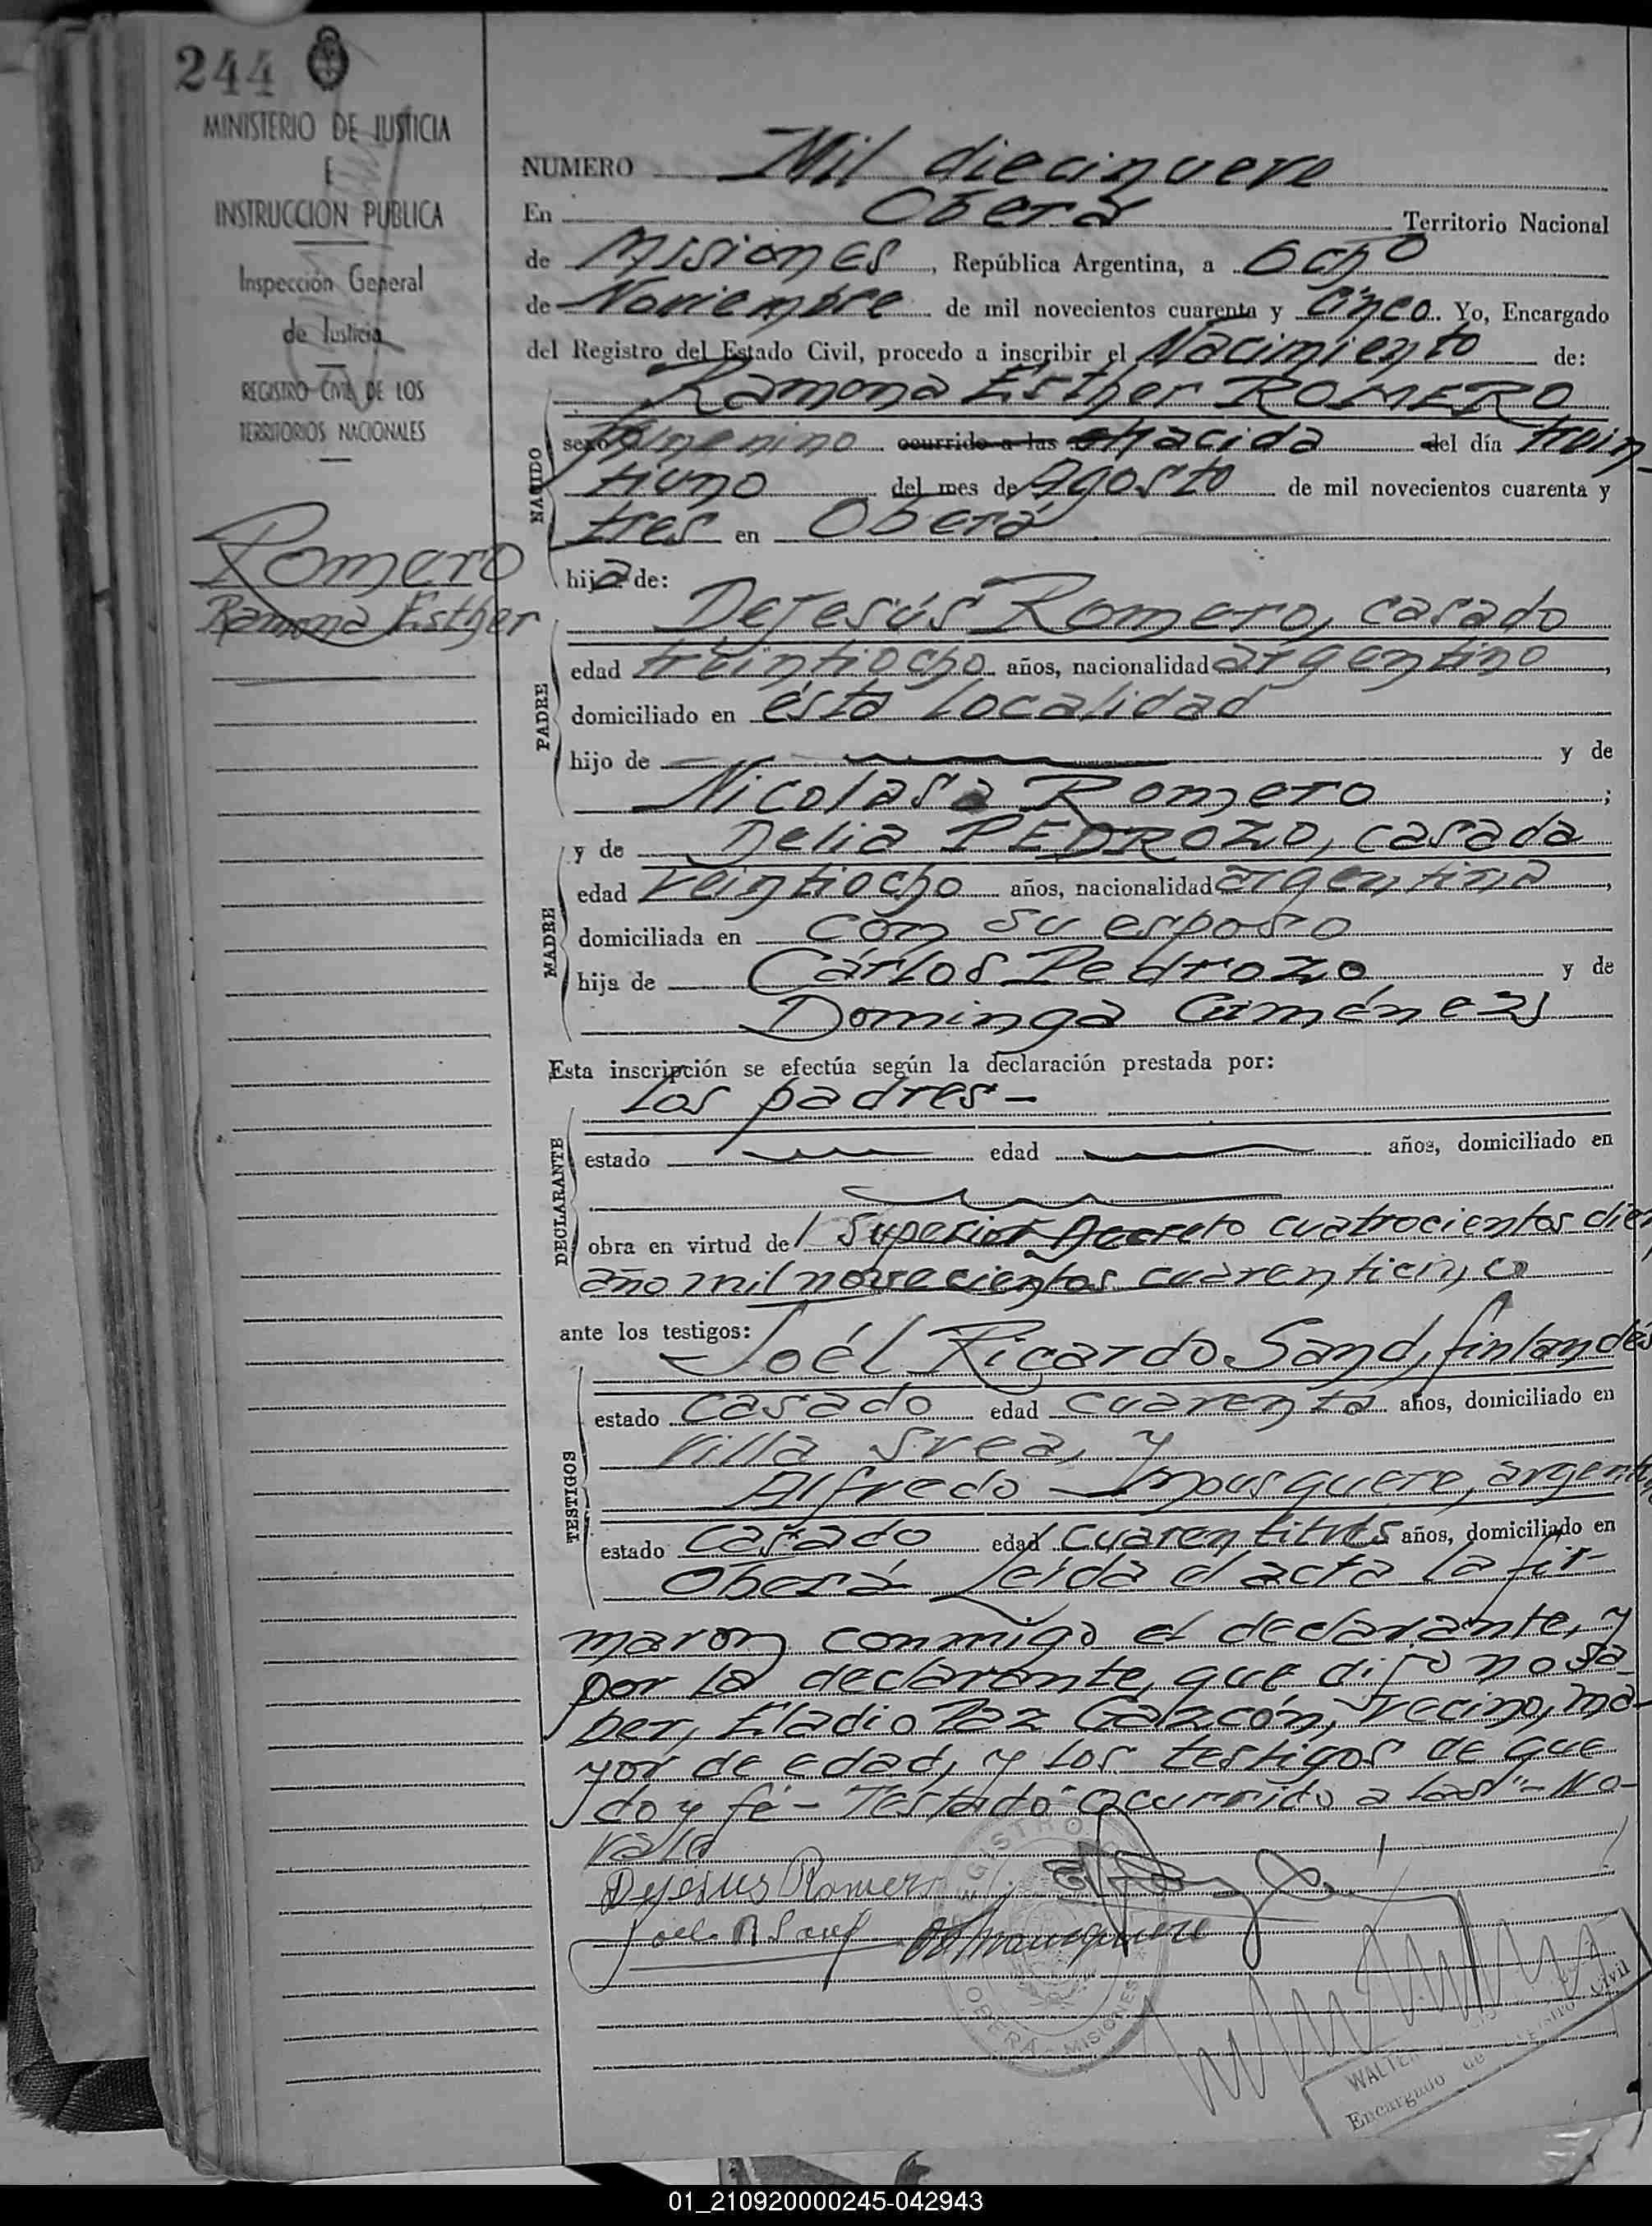 244
MINISTERIO DE JUSTICIA
E
INSTRUCCION PUBLICA
Inspección General
de Justicia
REGISTRO CIVIL DE LOS
TERRITORIOS NACIONALES
Romero
Ramona Esther
NUMERO Mil diecinueve
En Oberá Territorio Nacional
de Misiones, República Argentina, a Ocho
de Noviembre de mil novecientos cuarenta y cinco. Yo, Encargado
del Registro del Estado Civil, procedo a inscribir el Nacimiento de:
NACIDO
Ramona Esther ROMERO
sexo femenino ocurrido a las nacida del día trein-
tiuno del mes de Agosto de mil novecientos cuarenta y
tres en Oberá
hija de:
PADRE
DeJesús Romero, casado
edad treintiocho años, nacionalidad argentino,
domiciliado en ésta localidad
hijo de y de
Nicolasa Romero;
MADRE
y de Delia PEDROZO, casada
edad veintiocho años, nacionalidad argentina,
domiciliada en con su esposo
hija de Cárlos Pedrozo y de
Dominga
Esta inscripción se efectúa según la declaración prestada por:
DECLARANTE
los padres-
estado edad años, domiciliado en
obra en virtud del Superior Decreto cuatrocientos diez
año mil novecientos cuarenticinco
ante los testigos:
TESTIGOS
Joél Ricardo Sand, finlandés
estado casado edad cuarenta años, domiciliado en
Villa Svea, y
Alfredo argenti
estado casado edad cuarentitres años, domiciliado en
Oberá Leída el acta la fir-
maron conmigo el declarante, y
por la declarante, que dijo no sa-
ber, Eladio Paz vecino, ma-
yor de edad, y los testigos de que
doy fé- Testado "ocurrido a las"- No-
vale
Dejesus Romero
REGISTRO
OBERÁ - MISIONES
WALTER
Encargado de Registro Civil
01_210920000245-042943